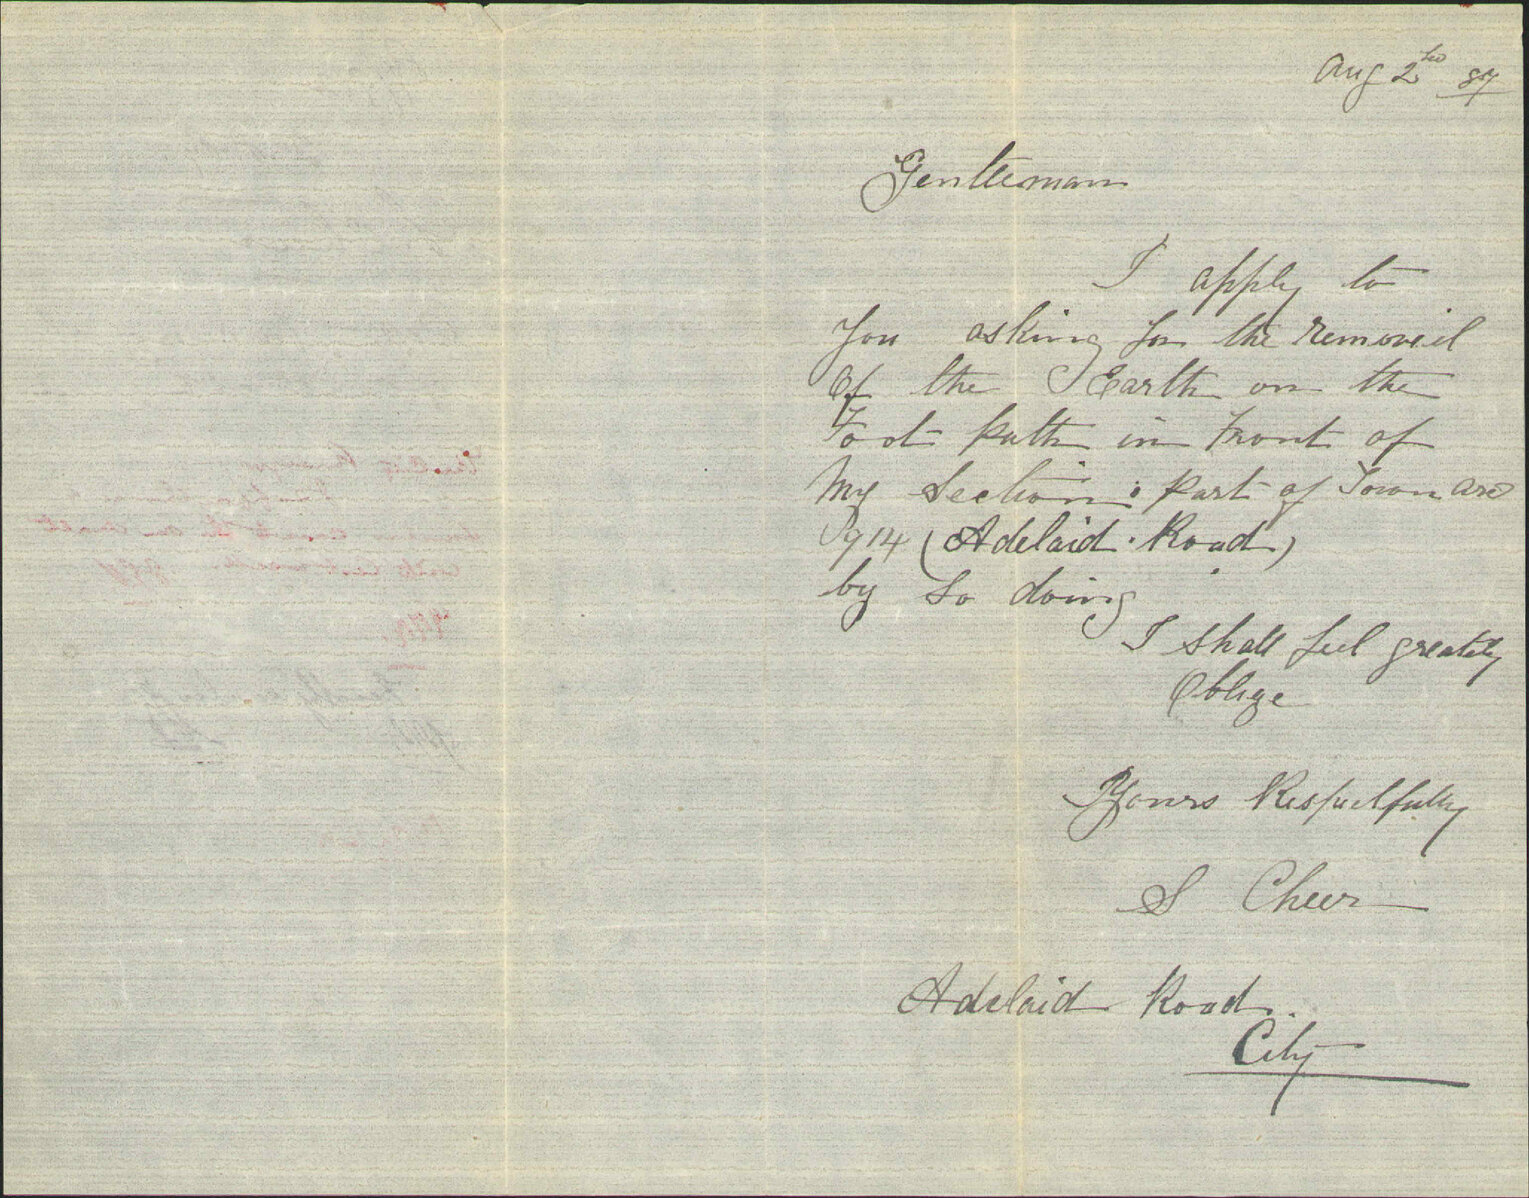 Aug 2nd 87
Gentleman
I apply to
You asking for the removiel
Of the Earth on the
Foot path in front of
My Section: part of Town acre
914 (Adelaid. Road)
by So doing
I shall feel greatly
Oblige
Yours Respectfully
S Cheer
Adelaid Road.
City